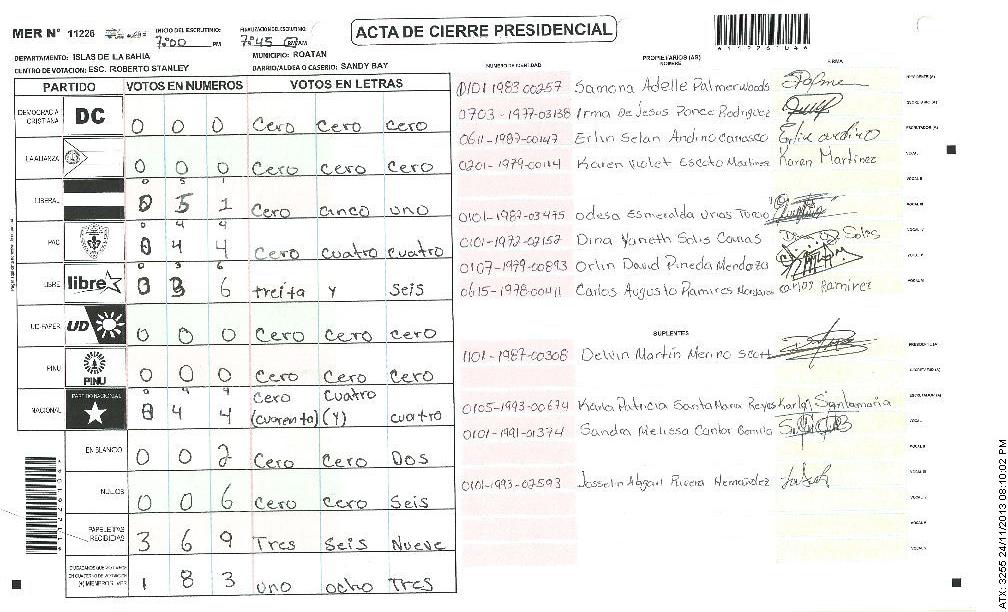 MER N° 11226 INICIO DEL ESCRUTINIO: 7:00 PM FINALIZACION DEL ESCRUTINIO: 7:45 PM/AM
ACTA DE CIERRE PRESIDENCIAL
DEPARTAMENTO: ISLAS DE LA BAHIA MUNICIPIO: ROATAN
CENTRO DE VOTACION: ESC. ROBERTO STANLEY BARRIO/ALDEA O CASERIO: SANDY BAY
PARTIDO VOTOS EN NUMEROS VOTOS EN LETRAS
DEMOCRACIA CRISTIANA DC 0 0 0 Cero Cero Cero
LA ALIANZA 0 0 0 Cero Cero Cero
0 5 1
LIBERAL 0 5 1 Cero cinco uno
0 4 4
PAC 0 4 4 Cero cuatro cuatro
0 3 6
LIBRE libre 0 3 6 treita y seis
UD-FAPER UD 0 0 0 Cero Cero cero
PINU PINU 0 0 0 Cero Cero Cero
0 4 4 Cero cuatro
NACIONAL PARTIDO NACIONAL 0 4 4 (cuarenta) (Y) cuatro
EN BLANCO 0 0 2 Cero Cero Dos
NULOS 0 0 6 Cero Cero Seis
PAPELETAS RECIBIDAS 3 6 9 Tres Seis Nueve
1 8 3 uno ocho Tres
NUMERO DE IDENTIDAD PROPIETARIOS (AS) NOMBRE FIRMA
0101 1983 00257 Samona Adelle Palmer Woods
0703-1977-03138 Irma De Jesus Ponce Rodriguez
0611-1987-00147 Erlin Selan Andino Carrasco
0201-1979-00114 Karen Violet Escoto Martinez Karen Martinez
0101-1987-03475 Odesa Esmeralda Urias
0101-1972-02152 Dina Yaneth Solis
0107-1979-00893 Orlin David Pineda Mendoza
0615-1978-00411 Carlos Augusto Ramires Carlos Ramirez
SUPLENTES
1101-1987-00308 Delvin Martin Merino Scott
0105-1993-00674 Karla Patricia Santa Maria Reyes Karla Santamaria
0101-1991-01374 Sandra Melissa Cantor Bonilla
0101-1993-02593 Josselin Abigail Rivera Hernandez
ATX: 3255 24/11/2013 08:10:02 PM